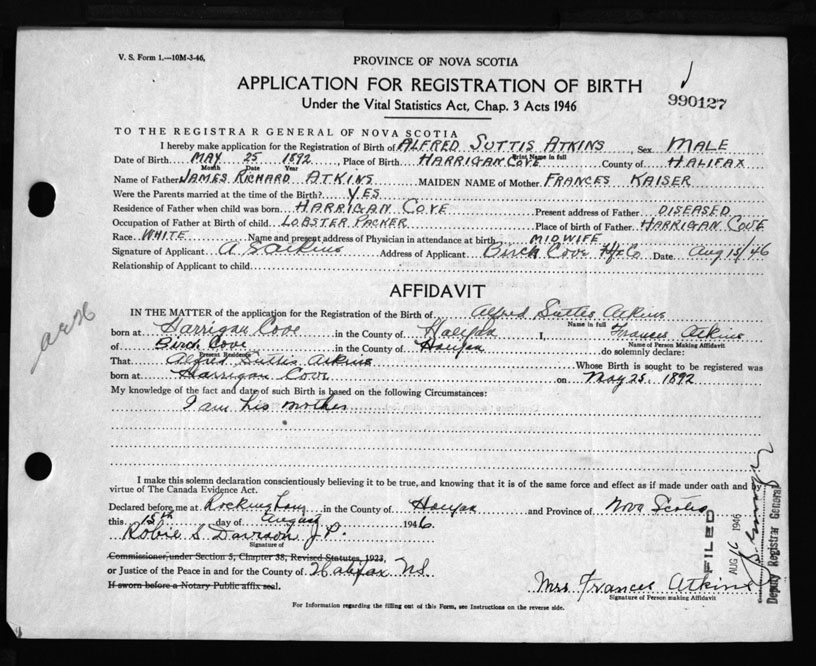 V. S. Form 1.—10M-3-46,
PROVINCE OF NOVA SCOTIA
APPLICATION FOR REGISTRATION OF BIRTH
990127
Under the Vital Statistics Act, Chap. 3 Acts 1946
TO THE REGISTRAR GENERAL OF NOVA SCOTIA
I hereby make application for the Registration of Birth of ALFRED SUTTIS ATKINS, Sex MALE
Print Name in full
Date of Birth MAY 25 1892, Place of Birth HARRIGAN COVE County of HALIFAX
Month Date Year
Name of Father JAMES RICHARD ATKINS MAIDEN NAME of Mother FRANCES KAISER
Were the Parents married at the time of the Birth? YES
Residence of Father when child was born HARRIGAN COVE Present address of Father DISEASED
Occupation of Father at Birth of child LOBSTER PACKER Place of birth of Father HARRIGAN COVE
Race WHITE Name and present address of Physician in attendance at birth MIDWIFE
Signature of Applicant A S Atkins Address of Applicant Birch Cove Hfx Co Date Aug 15/46
Relationship of Applicant to child
AFFIDAVIT
IN THE MATTER of the application for the Registration of the Birth of Alfred Suttis Atkins
Name in full
born at Harrigan Cove in the County of Halifax I, Frances Atkins
Name of Person Making Affidavit
of Birch Cove in the County of Halifax do solemnly declare:
Present Residence
That Alfred Suttis Atkins Whose Birth is sought to be registered was
born at Harrigan Cove on May 25, 1892
My knowledge of the fact and date of such Birth is based on the following Circumstances:
I am his mother
I make this solemn declaration conscientiously believing it to be true, and knowing that it is of the same force and effect as if made under oath and by
virtue of The Canada Evidence Act.
Declared before me at Rockingham in the County of Halifax and Province of Nova Scotia
this 15th day of August 1946
Robie S. Davison J.P.
Signature of
Commissioner, under Section 5, Chapter 38, Revised Statutes, 1923,
or Justice of the Peace in and for the County of Halifax NS
If sworn before a Notary Public affix seal.
Mrs Frances Atkins
Signature of Person making Affidavit
For Information regarding the filling out of this Form, see Instructions on the reverse side.
FILED
AUG 16 1946
Deputy Registrar General